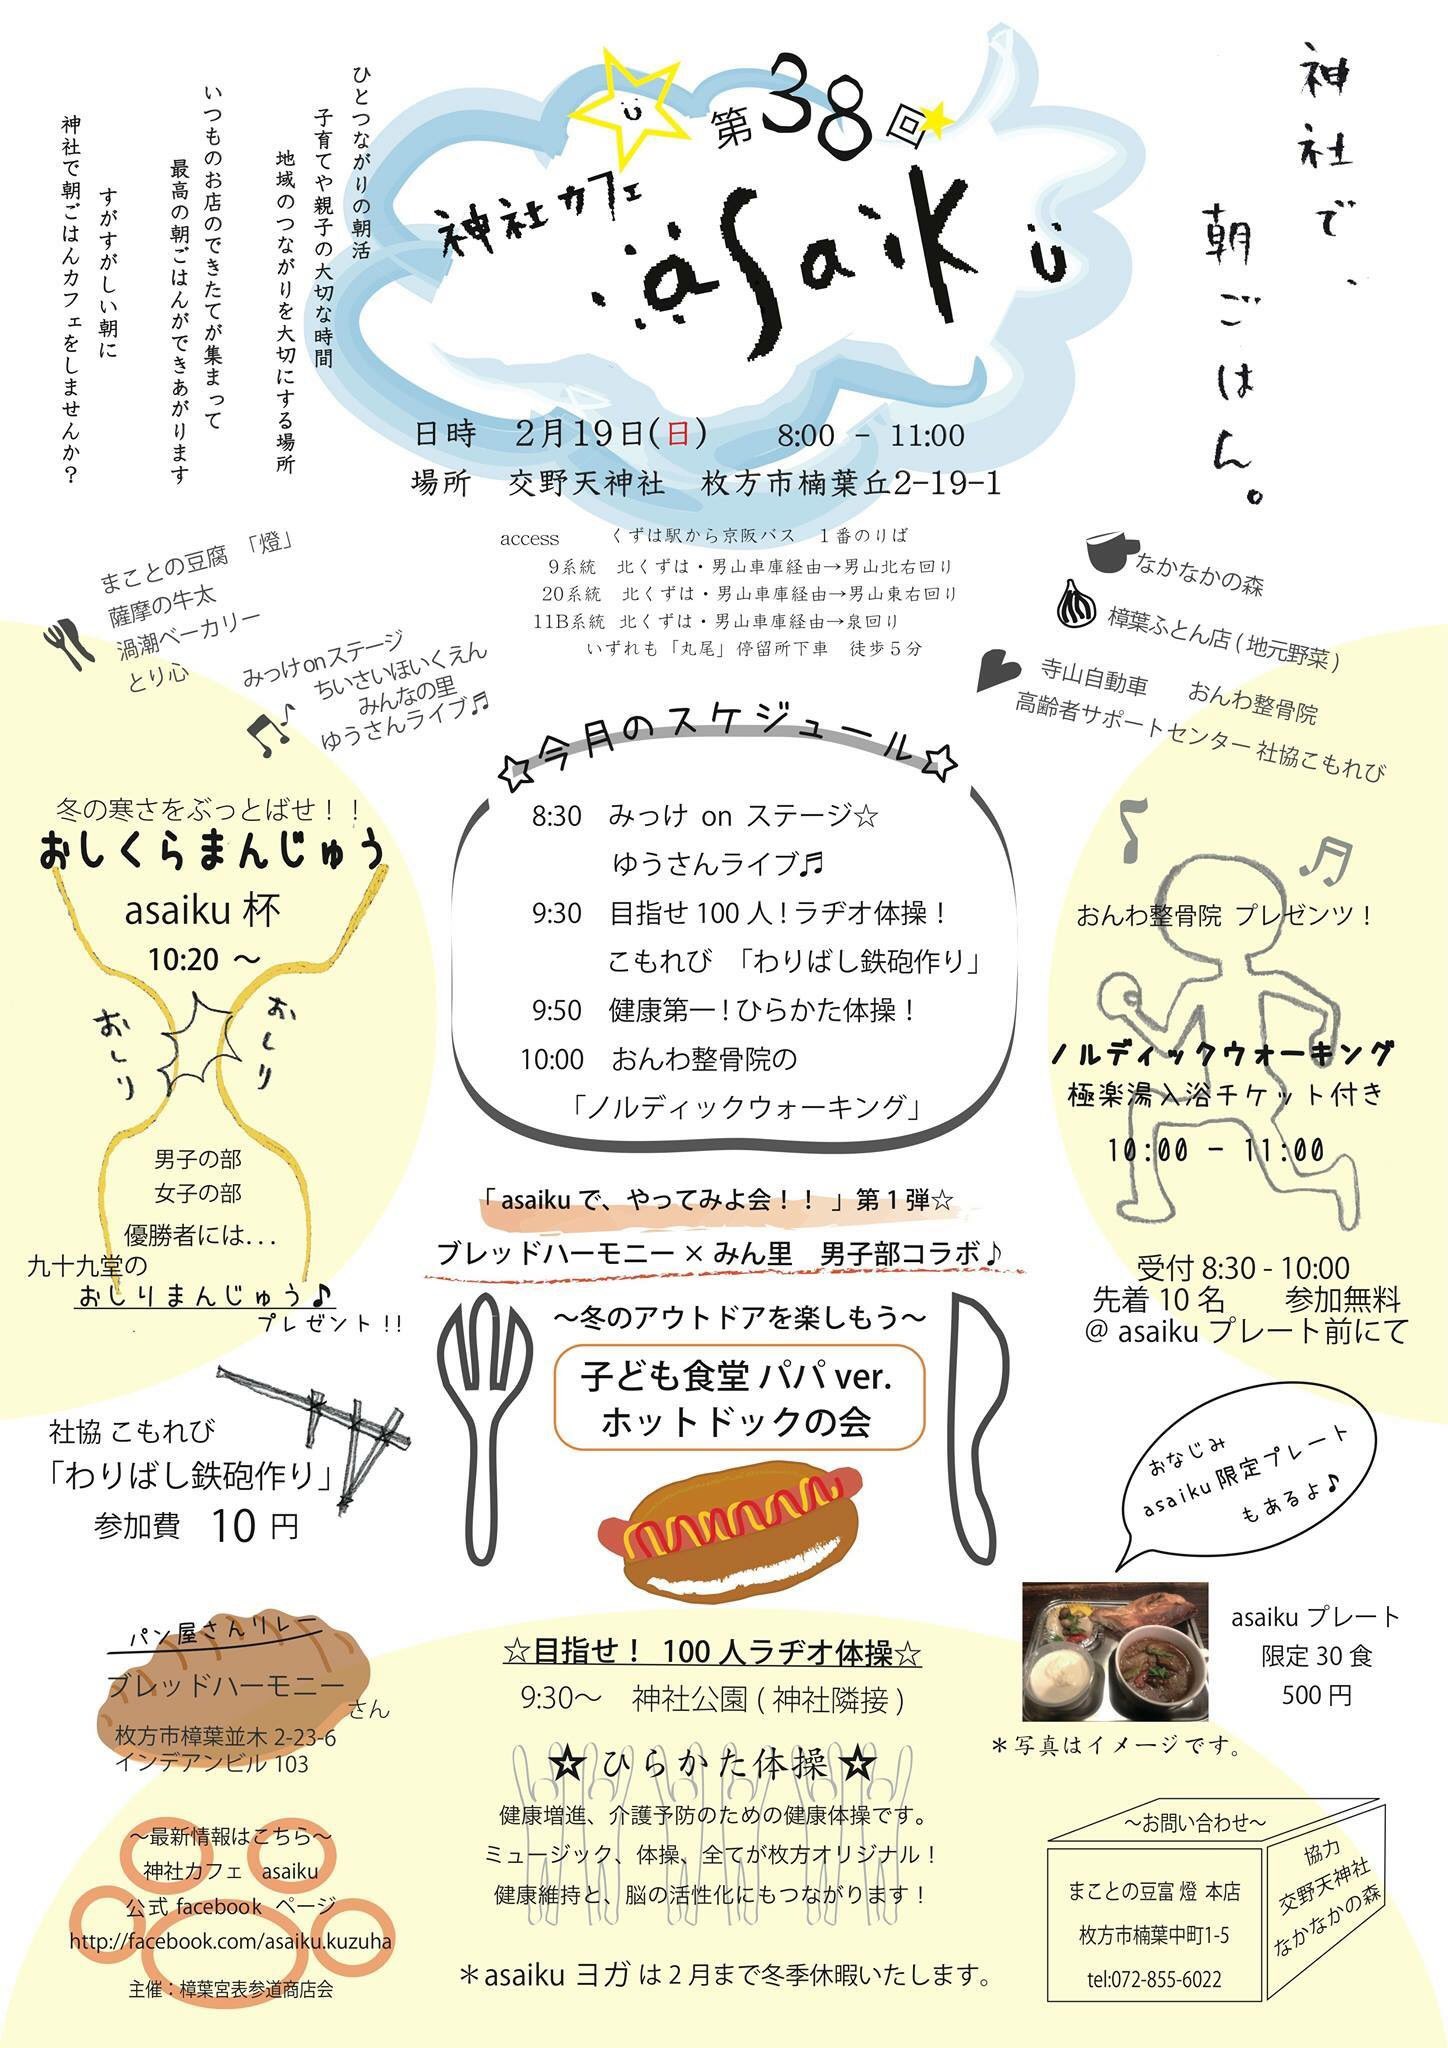 神社で、
朝ごはん。
第38回
神社カフェ
asaiku
ひとつながりの朝活
子育てや親子の大切な時間
地域のつながりを大切にする場所
いつものお店のできたてが集まって
最高の朝ごはんができあがります
すがすがしい朝に
神社で朝ごはんカフェをしませんか?
日時 2月19日(日) 8:00 - 11:00
場所 交野天神社 枚方市楠葉丘2-19-1
access くずは駅から京阪バス 1番のりば
9系統 北くずは・男山車庫経由→男山北右回り
20系統 北くずは・男山車庫経由→男山東右回り
11B系統 北くずは・男山車庫経由→泉回り
いずれも「丸尾」停留所下車 徒歩5分
まことの豆腐 「燈」
薩摩の牛太
渦潮ベーカリー
とり心
みっけonステージ
ちいさいほいくえん
みんなの里
ゆうさんライブ♬
なかなかの森
樟葉ふとん店(地元野菜)
寺山自動車 おんわ整骨院
高齢者サポートセンター 社協こもれび
☆今月のスケジュール☆
8:30 みっけ on ステージ☆
ゆうさんライブ♬
9:30 目指せ100人!ラヂオ体操!
こもれび 「わりばし鉄砲作り」
9:50 健康第一!ひらかた体操!
10:00 おんわ整骨院の
「ノルディックウォーキング」
冬の寒さをぶっとばせ!!
おしくらまんじゅう
asaiku 杯
10:20 ~
おしり
おしり
男子の部
女子の部
優勝者には...
九十九堂の
おしりまんじゅう♪
プレゼント!!
おんわ整骨院 プレゼンツ!
ノルディックウォーキング
極楽湯入浴チケット付き
10:00 - 11:00
受付 8:30 - 10:00
先着10名 参加無料
@ asaiku プレート前にて
「asaikuで、やってみよ会!!」第1弾☆
ブレッドハーモニー×みん里 男子部コラボ♪
~冬のアウトドアを楽しもう~
子ども食堂 パパ ver.
ホットドックの会
社協 こもれび
「わりばし鉄砲作り」
参加費 10 円
おなじみ
asaiku限定プレート
もあるよ♪
asaiku プレート
限定30食
500円
*写真はイメージです。
パン屋さんリレー
ブレッドハーモニー
さん
枚方市樟葉並木 2-23-6
インデアンビル 103
☆目指せ! 100人ラヂオ体操☆
9:30~ 神社公園(神社隣接)
☆ひらかた体操☆
健康増進、介護予防のための健康体操です。
ミュージック、体操、全てが枚方オリジナル!
健康維持と、脳の活性化にもつながります!
*asaiku ヨガ は2月まで冬季休暇いたします。
~最新情報はこちら~
神社カフェ asaiku
公式 facebook ページ
http://facebook.com/asaiku.kuzuha
主催:樟葉宮表参道商店会
~お問い合わせ~
まことの豆富 燈 本店
枚方市楠葉中町1-5
tel:072-855-6022
協力
交野天神社
なかなかの森